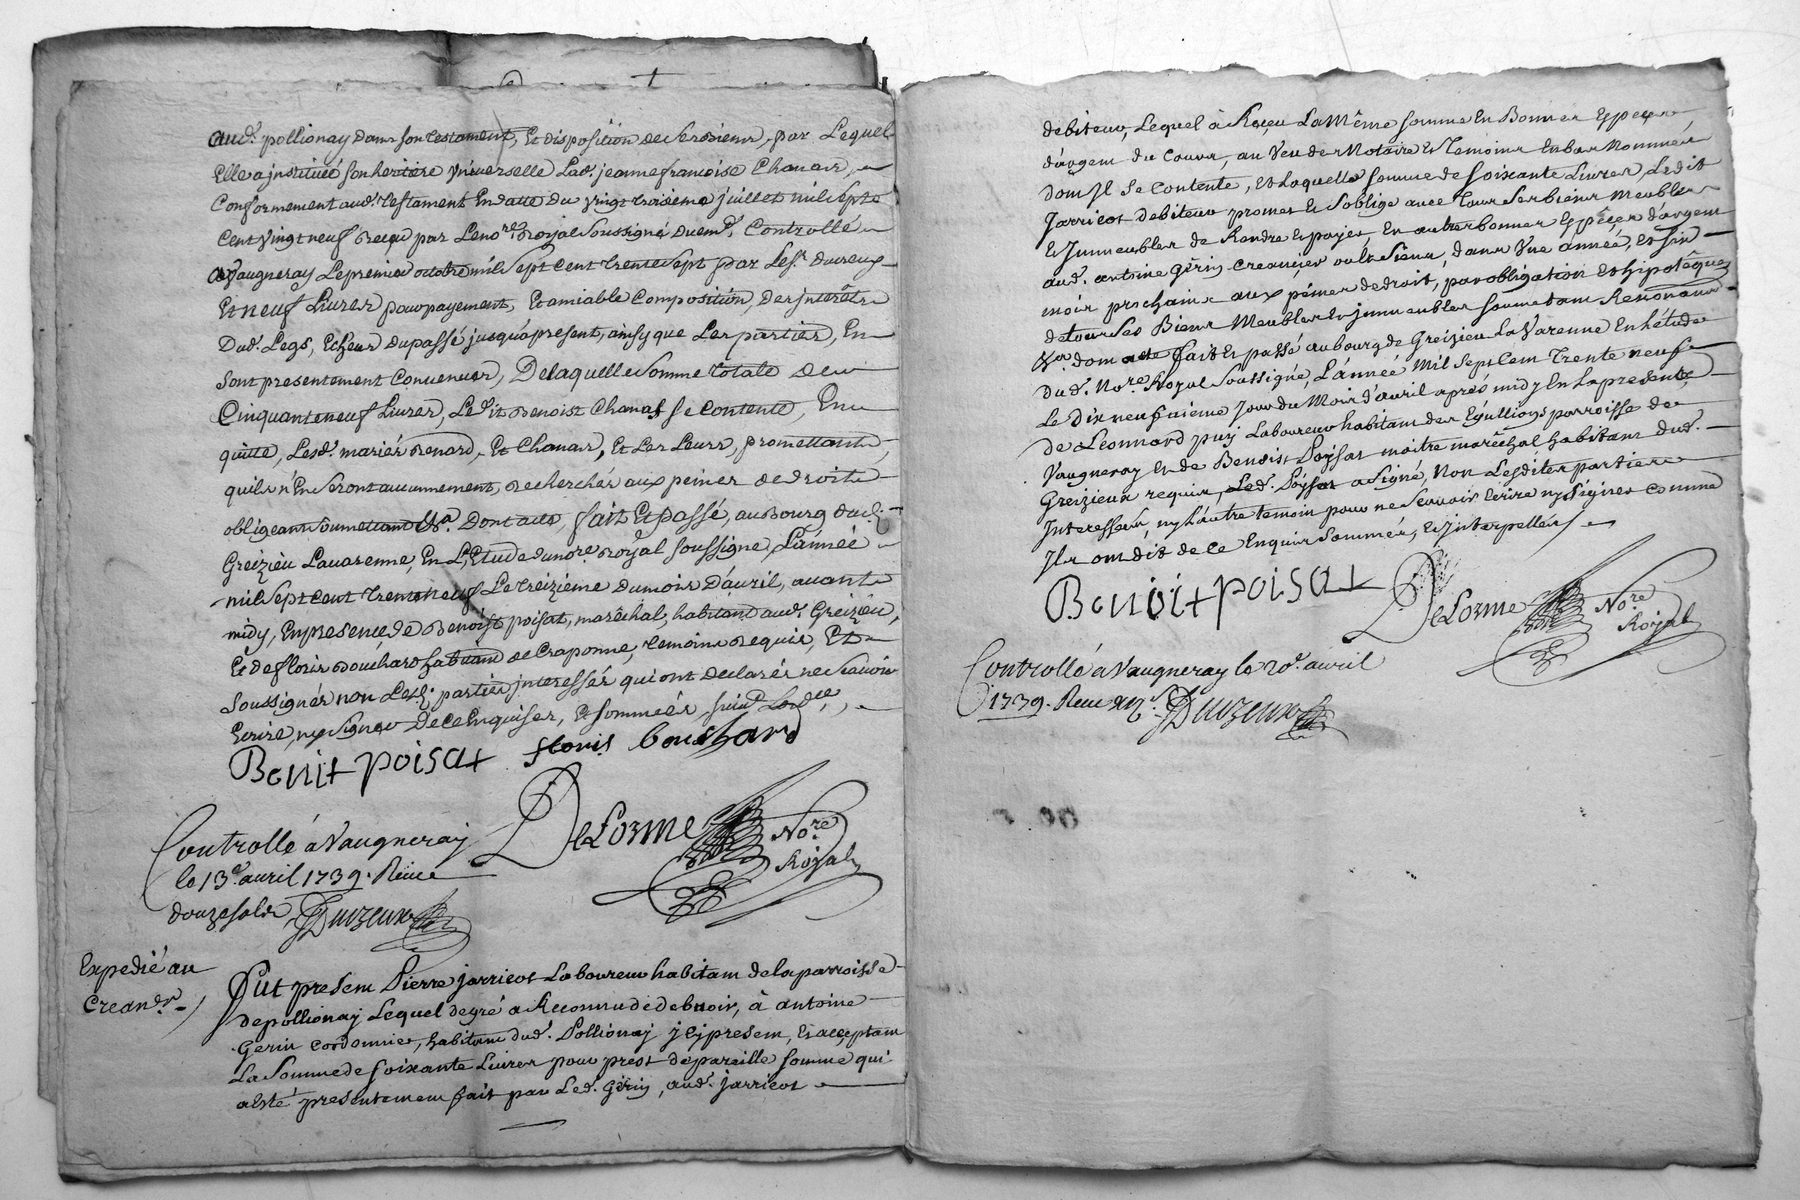 aud. pollionay dans son testament, Et disposition de ses biens, par Lequel
Elle a institueé son heritiere Universelle Lad. jeanne francoise Chanas,
Conformement aud. testament En datte du vingt troisieme juillet mil sept
Cent Vingt neuf Recu par Le no.re Royal Soussigné Duem.t Controllé
a Vaugneray Le premier octobre mil sept cent trente sept par Le S.r
Et neuf Livres pour payement, Et amiable Composition, des interêts
Dud. Legs, Echeus du passé jusqu'apresent, ainsy que Les parties, En
Sont presentement Convenues, De laquelle Somme totale de
Cinquante neuf Livres, Ledit Benoist Chanas Se Contente, En
quitte, Lesd. mariés Renard, Et Chanas, Et Les Leurs, promettant
quils n'En Seront aucunement, Recherchés aux peines de droits
obligeant Soumettant &.a Dont acte, fait Et passé, au Bourg dud.
Greizieu Lavarenne, En L'Etude du no.re Royal Soussigné, L'année
mil sept cent trente neuf Le treizième du mois D'avril, avant
midy, En presence de Benoist poisat, marêchal, habitant aud. Greizieu,
Et de floris Bouchard habitant de Craponne, temoins Requis, Et
Soussignés non Lesd. parties interessés qui ont declarés ne Scavoir
Ecrire, ny Signer de ce Enquises, Et Sommeés,
Benit poisat floris bouchard
DeLorme No.re
Royal
Controllé a Vaugneray
le 13.e avril 1739. Reçu
douze sols
Expedié au
Crean.r
Fut present Pierre jarricot Laboureur habitant de la parroisse
de pollionay Lequel de gré a Reconnu de debvoir, à antoine
Gerin cordonnier, habitant dud. Pollionay jcy present, Et acceptant
La Somme de Soixante Livres pour prest de pareille Somme qui
a Esté presentement fait par Led. Gerin, aud. jarricot
debiteur, Lequel à Reçeu La Même Somme En Bonnes Espeçes
d'argent du Cours, au Veu des Notaire Et Temoins En bas Nommés
dom Jl Se Contente, Et Laquelle Somme de Soixante Livres, Ledit
Jarricot debiteur promet Et S'oblige avec tous Ses biens Meubles
Et Jmmeubles de Rendre Et payer En autres bonnes Espêçes d'argent
aud. antoine Gérin Creançier ou Es Siens, dans Une année, Et Six
mois prochains aux peines de droit, par obligation Et hipotêque
de tous Ses Biens Meubles Et jmmeubles Soumettant Renonçant
&.a dom acte fait Et passé au bourg de Greizieu La Varenne En L'étude
du d. No.re Royal Soussigné, L'année Mil Sept Cent trente neuf
Le Dix neufvieme jour du Mois d'avril aprés midy En La presence
de Leonnard puy Laboureur habitant des Eguillions parroisse de
Vaugneray Et de Benoist Poisat maitre marêchal habitant dud.
Greizieux requis, Led. Poisat a Signé, Non Lesdites parties
Interesseés, ny L'autre temoin pour ne Scavoir Ecrire ny Signer comme
Jls ont dit de Ce Enquis Sommés, Et Jnterpellés
Benoit poisat DeLorme No.re
Royal
Controllé a Vaugneray le 20.e avril
1739. Reçu